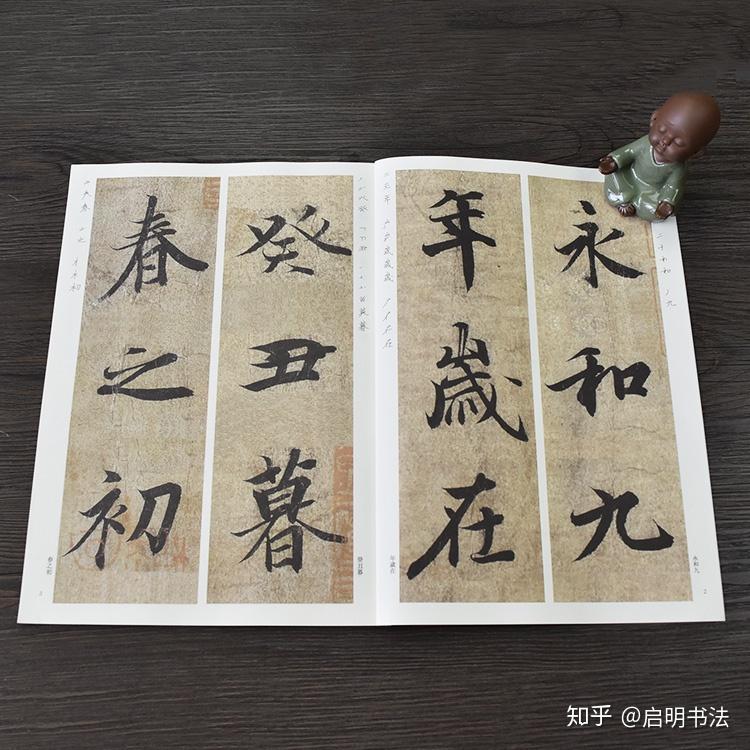 永和九
年歲在
癸丑暮
春之初
永和九
年歲在
癸丑暮
春之初
2
3
知乎 @启明书法